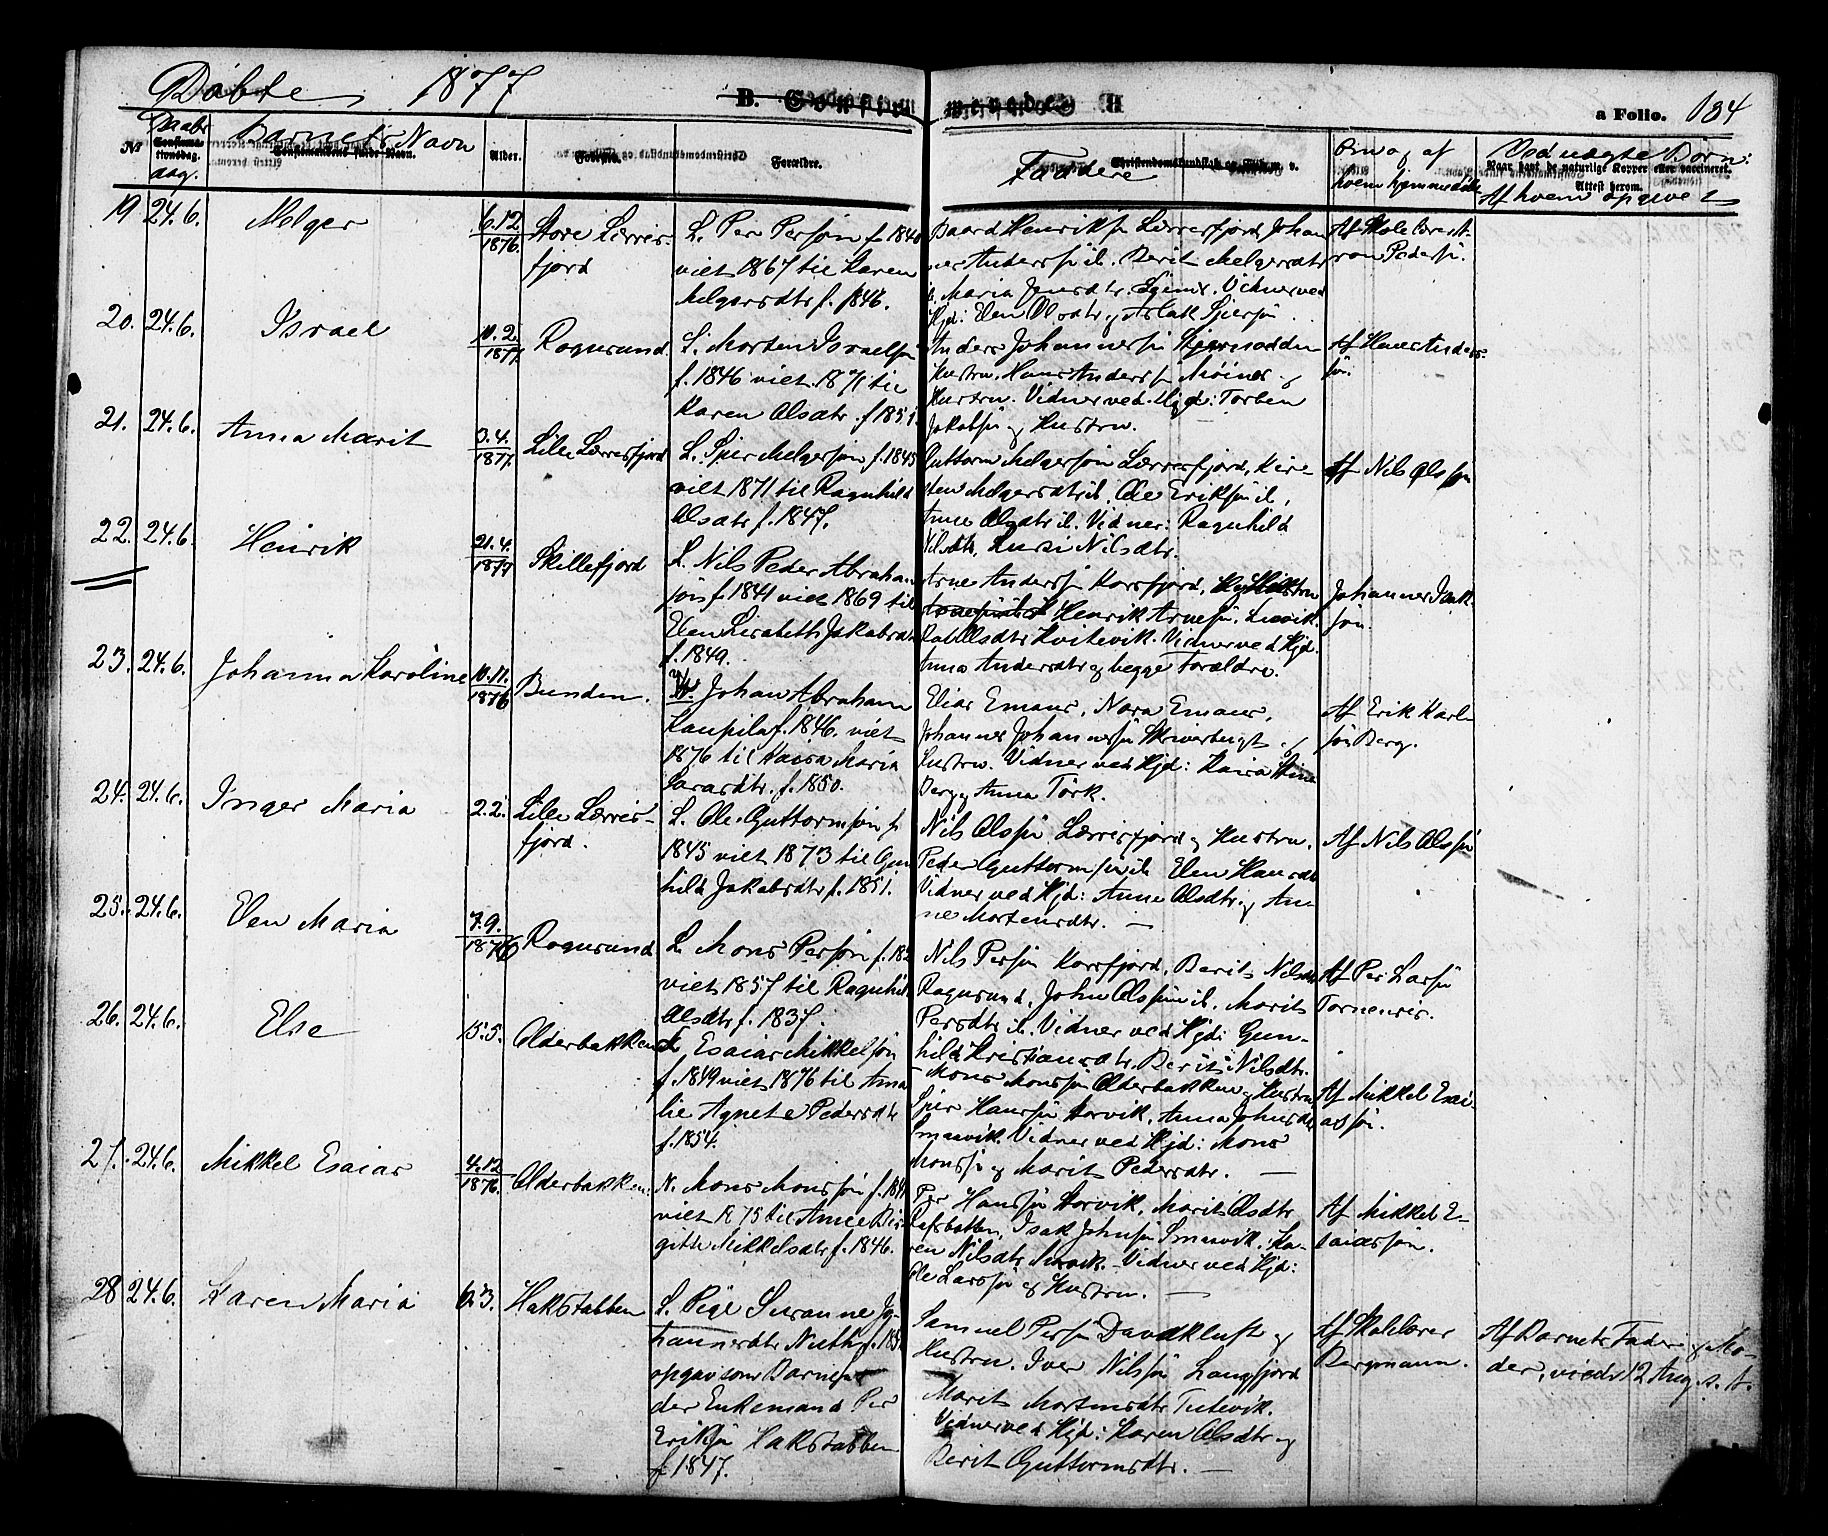 Döbte 1877
B. Confir merede H a Folio. 184
No Daabsdag. Confirmationsdag. Barnets Navn Alder. Fødested. Forældre. Faddere Om og af hvem hjemmedøbt Ved uægte Börn: Af hvem opgivet
Naar havt de naturlige Kopper eller vaccineret. Attest herom.
19 24.6. Melger 6.12 1876. Store Lerris-
fjord
L. Per Persön f. 1840
viet 1867 til Karen
Melgersdtr f. 1846.
Baard Henriks Lerresfjord, Johan-
nes Anderssön ib. Berit Melgersdtr
ib. Maria Jensdtr. Vidner ved
Hjd: Elen Olsdtr og Aslak Spersön.
Af Skole
Pedersö.
20. 24.6. Israel 10.2. 1877 Rognsund
L. Morten Israelsön
f. 1846 viet 1871 til
Karen Olsdtr. f 1851.
Anders Johannesön
Hustru, Hans Anders
Hustru. Vidner ved Hjd: Torben
Jakobsön og Hustru.
Af Hans Anders-
sön.
21. 24.6. Anna Marit 3.4. 1877. Lille Lerresfjord
L. Sper Melgersön f. 1845
viet 1871 til Ragnhild
Olsdtr f. 1847.
Guttorm Melgersön Lerresfjord, Kir-
sten Melgersdtr ib, Ole Eriksön ib,
Anne Olsdtr ib. Vidner: Ragnhild
Nilsdtr, Nilsdtr.
Af Nils Olssön
22. 24.6. Henrik 21.4. 1877 Skillefjord
L. Nils Peder Abraham-
sön f 1841 viet 1869 til
Elen Lisabeth Jakobsdtr
f. 1849.
Arne Anderssön Korsfjord,
Henrik Arnesön,
Olsdtr Kvitevik. Vidner ved Hjd.
Anna Andersdtr og begge Forældre.
Johannes Isak-
sön.
23. 24.6. Johanna Karoline 10.11. 1876 Bunden.
Johan Abraham
Kaupila f. 1846. viet
1876 til Kaisa Maria
f. 1850.
Elias Emaus, Nora Emaus,
Johannes Johannesön og
Hustru. Vidner ved Hjd: Kaisa Stina
Berg og Anna Törk.
Af Erik Karl-
sön Berg.
24. 24.6. Inger Maria 2.2. Lille Lerris-
fjord.
L. Ole Guttormsön f.
1845 viet 1873 til Gun
hild Jakobsdtr f. 1851.
Nils Olssön Lerrisfjord og Hustru.
Peder Guttormsön ib Elen Hansdtr
Vidner ved Hjd: Anne Olsdtr og An-
ne Mortensdtr. —
Af Nils Olssön
25. 24.6. Elen Maria 7.9. 1876 Rognsund
L. Mons Persön f.
viet 1857 til Ragnhild
Olsdtr f. 1837.
Nils Persön Korsfjord, Berit Nilsdtr
Rognsund, John Olssön ib, Marit
Persdtr ib. Vidner ved Hjd: Gun-
hild Kristiansdtr, Berit Nilsdtr.
Af Per Larsön
Tornensis.
26. 24.6. Else 15.5. Olderbakken
L. Esaias Mikkelsön
f. 1849 viet 1876 til Ama
lie Agnete Pedersdtr
f. 1854.
Mons Monssön Olderbakken og Hustru
Sper Hanssön Korvik, Anna Johnsdtr
Smavik. Vidner ved Hjd: Mons
Monssön og Marit Pedersdtr. —
Af Mikkel Esai-
assön.
27. 24.6. Mikkel Esaias 4.12 1876. Olderbakken.
N. Mons Monssön f. 184
viet 1875 til Anne Bir-
gitte Mikkelsdtr f. 1846.
Per Hanssön Korvik, Marit Olsdtr
Rafsbotten, Isak Johnsön Smavik, Ka-
ren Nilsdtr Smavik. Vidner ved Hjd:
Ole Larssön og Hustru. —
Af Mikkel E-
saiassön.
28 24.6. Karen Maria 6.3. Hakstabben
L. Pige Susanne Jo-
hannesdtr f. 185
opgav som Barnefa-
der Enkemand Per
Eriksön Hakstabben
f 1847.
Samuel Persön Davidkluft og
Hustru. Iver Nilsön Langfjord
Marit Mortensdtr Tutevik.
Vidner ved Hjd: Karen Olsdtr og
Berit Guttormsdtr. —
Af Skolelærer
Bergmann.
Af Barnets Fader og Mo-
der, viede 12 Aug. s. A.